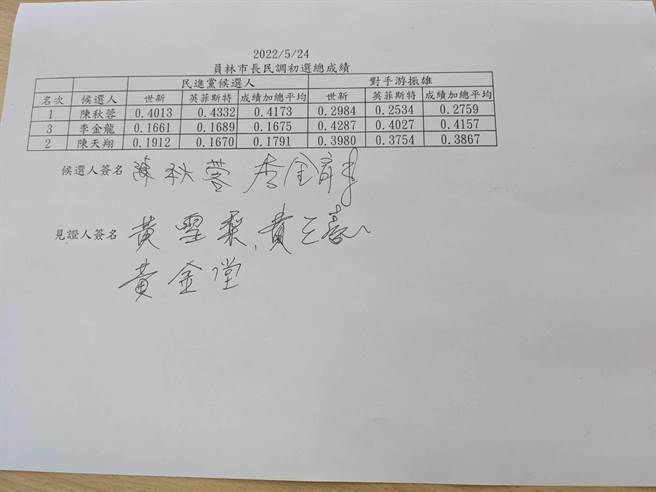 2022/5/24
員林市長民調初選總成績
民進黨候選人 對手游振雄
名次 候選人 世新 英菲斯特 成績加總平均 世新 英菲斯特 成績加總平均
1 陳秋蓉 0.4013 0.4332 0.4173 0.2984 0.2534 0.2759
3 李金龍 0.1661 0.1689 0.1675 0.4287 0.4027 0.4157
2 陳天翔 0.1912 0.1670 0.1791 0.3980 0.3754 0.3867
候選人簽名 陳秋蓉 李金龍
見證人簽名 黃
黃金堂